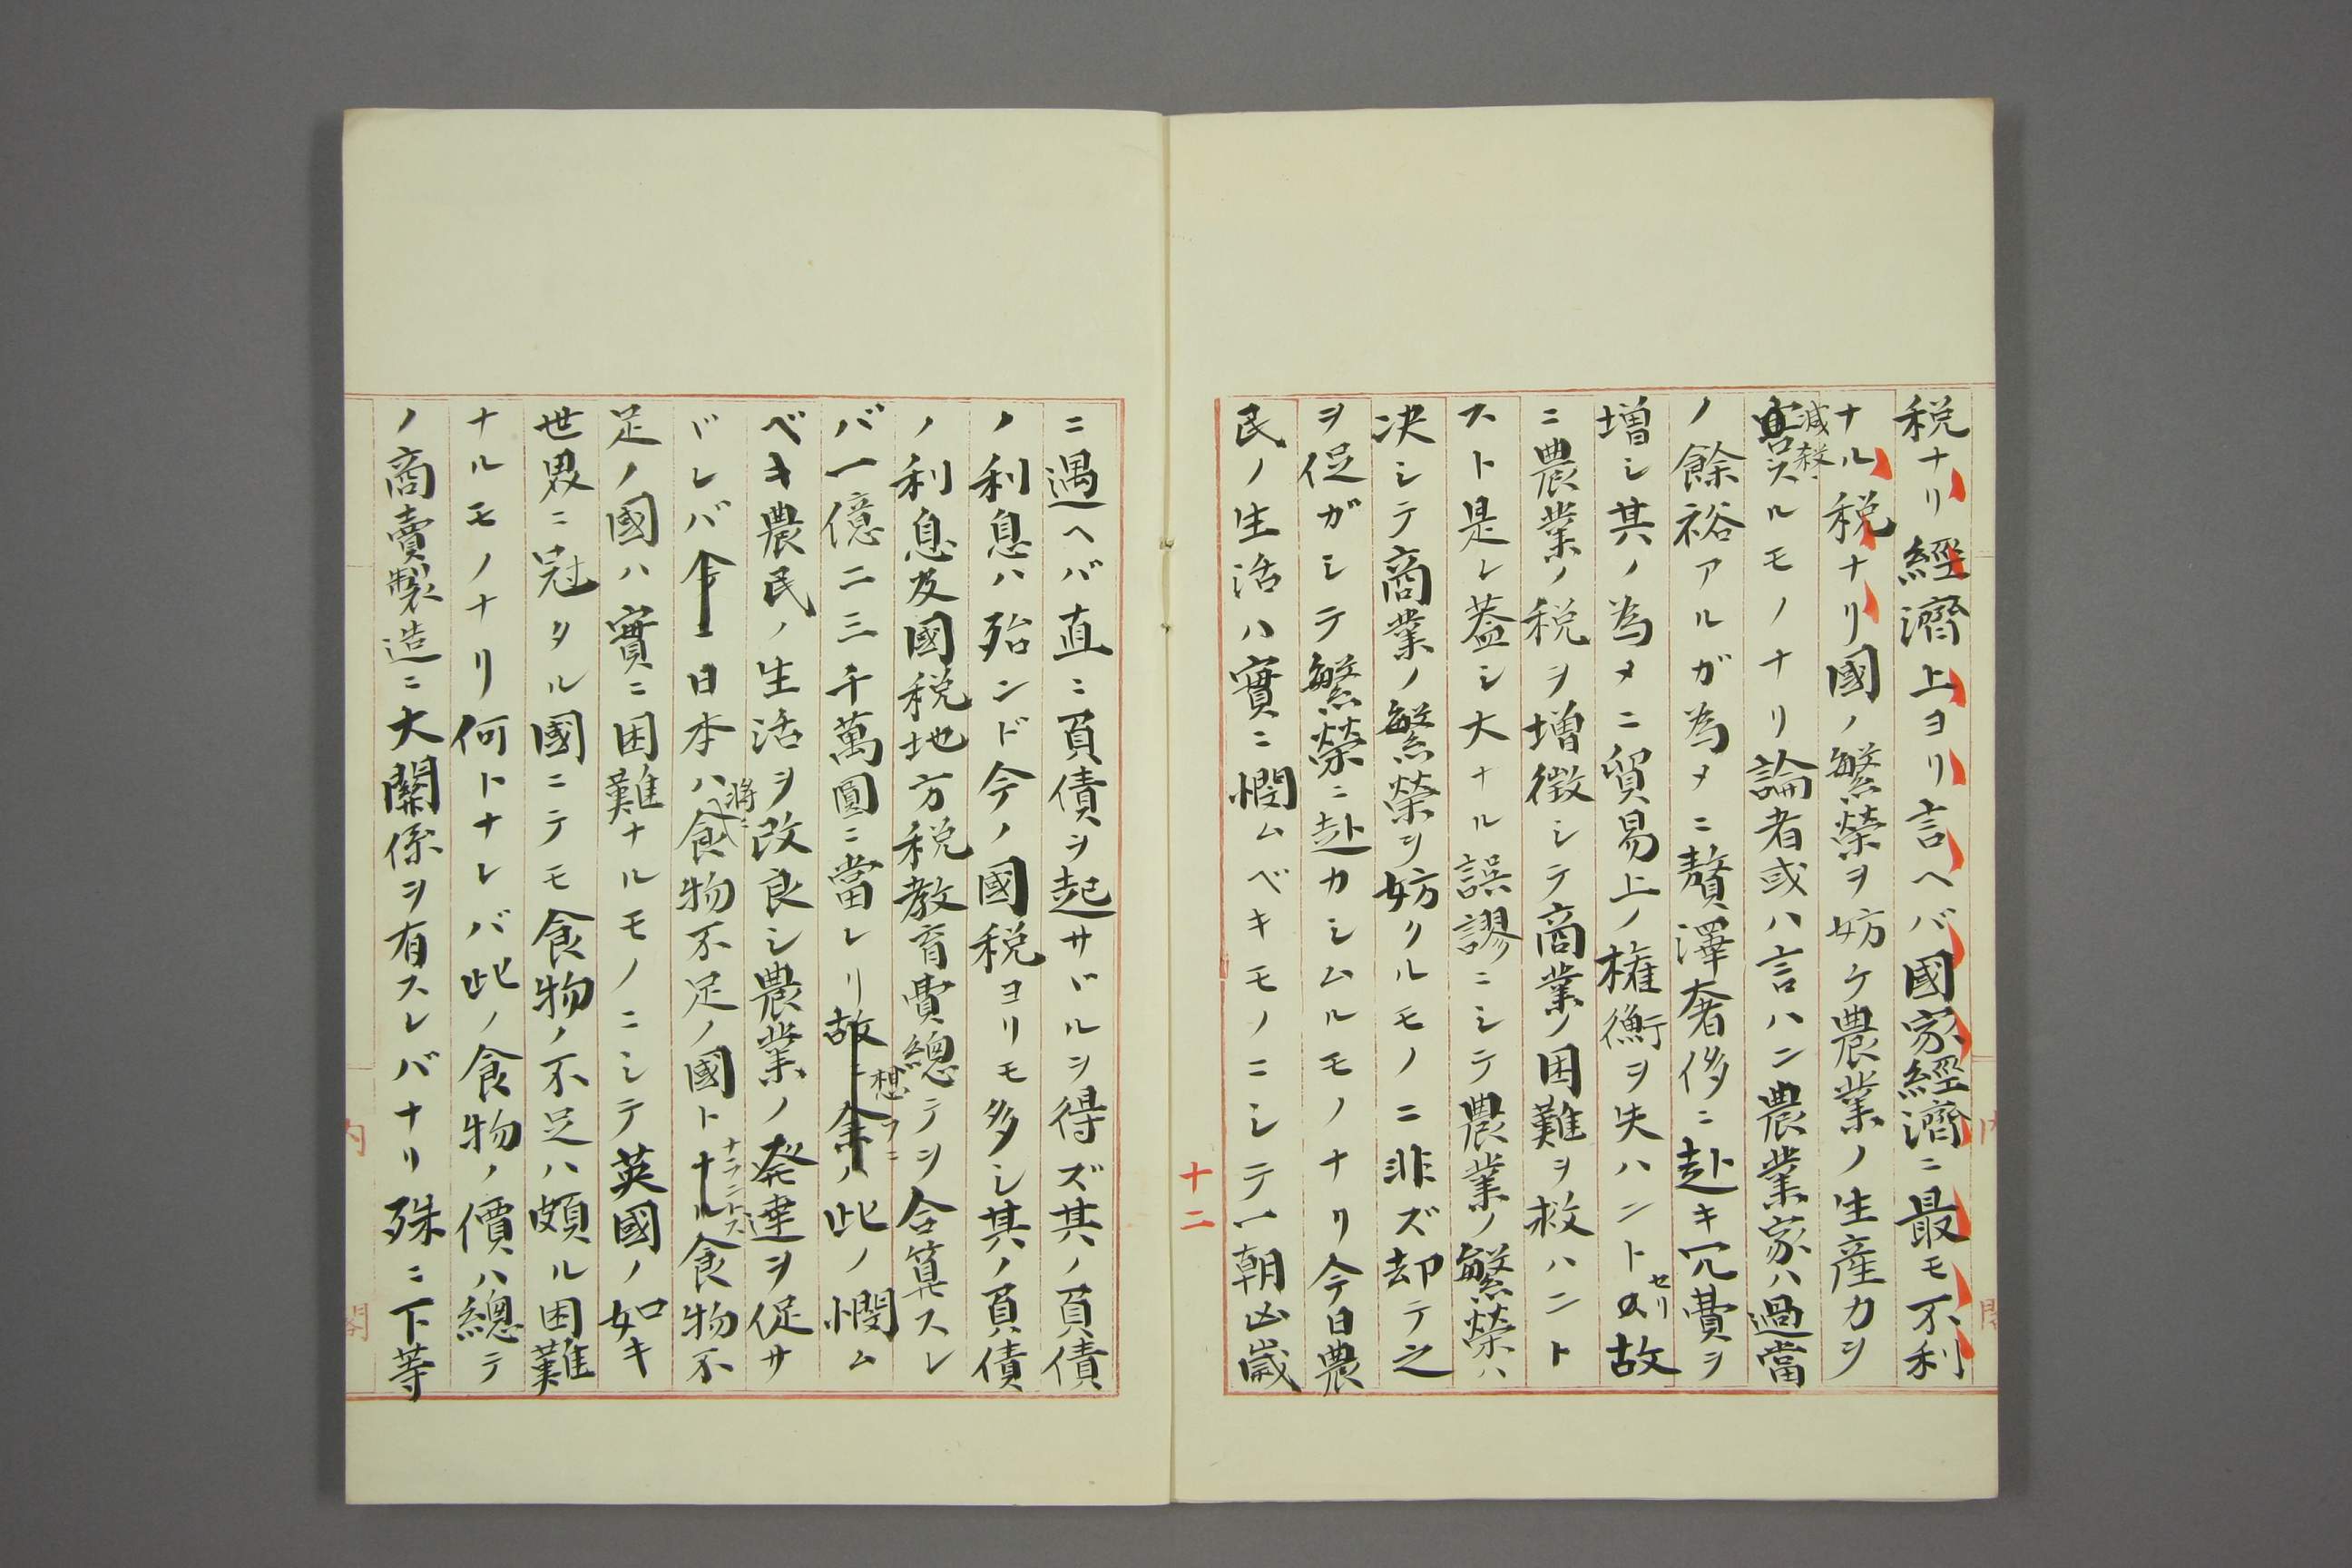 税ナリ經濟上ヨリ言ヘバ國家經濟ニ最モ不利
ナル税ナリ國ノ繁榮ヲ妨ケ農業ノ生産力ヲ
減殺
害スルモノナリ論者或ハ言ハン農業家ハ過當
ノ餘裕アルガ為メニ贅澤奢侈ニ赴キ冗費ヲ
増シ其ノ為メニ貿易上ノ権衡ヲ失ハント故
セリ
ニ農業ノ税ヲ増徴シテ商業ノ困難ヲ救ハント
スト是レ蓋シ大ナル誤謬ニシテ農業ノ繁榮ハ
决シテ商業ノ繁榮ヲ妨クルモノニ非ズ却テ之
ヲ促ガシテ繁榮ニ赴カシムルモノナリ今日農
民ノ生活ハ實ニ憫ムベキモノニシテ一朝凶歳
十二
ニ遇ヘバ直ニ負債ヲ起サヾルヲ得ズ其ノ負債
ノ利息ハ殆ンド今ノ國税ヨリモ多シ其ノ負債
ノ利息及國税地方税教育費總テヲ合算スレ
バ一億二三千萬圓ニ當レリ故ニ余ハ此ノ憫ム
想フニ
ベキ農民ノ生活ヲ改良シ農業ノ発達ヲ促サ
ヾレバ今日日本ハ食物不足ノ國トナル食物不
将ニ
ナラントス
足ノ國ハ實ニ困難ナルモノニシテ英國ノ如キ
世界ニ冠タル國ニテモ食物ノ不足ハ頗ル困難
ナルモノナリ何トナレバ此ノ食物ノ價ハ總テ
ノ商賣製造ニ大關係ヲ有スレバナリ殊ニ下等
内
閣